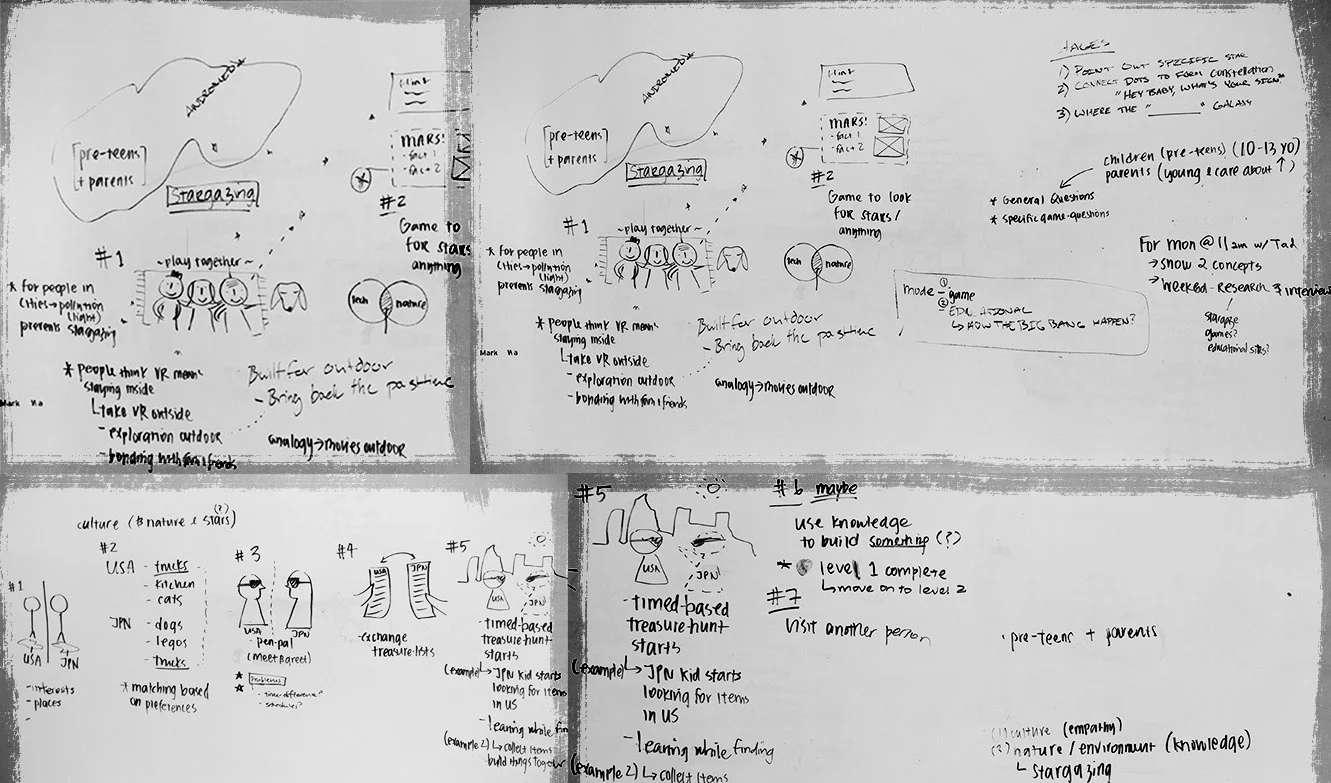 ANDROMEDA
[pre-teens]
+ parents
Stargazing
Hint
MARS!
- fact 1
- fact 2
#2
Game to
for stars
anything
#1
~play together~
* for people in
cities→pollution
(light)
prevents stargazing
* for people in
cities→pollution
(light)
prevents stargazing
tech
nature
* people think VR means
staying inside
↳take VR outside
- exploration outdoor
- bonding with fam & friends
Built for outdoor
- Bring back the pasttime
analogy→movies outdoor
ANDROMEDA
[pre-teens]
+ parents
Stargazing
Hint
MARS!
- fact 1
- fact 2
#2
Game to look
for stars/
anything
#1
~play together~
tech
nature
* people think VR means
staying inside
↳take VR outside
- exploration outdoor
- bonding with fam & friends
Built for outdoor
- Bring back the pasttime
analogy→movies outdoor
1) POINT OUT SPECIFIC STAR
2) CONNECT DOTS TO FORM CONSTELLATION
"HEY BABY, WHAT'S YOUR SIGN?"
3) WHERE THE "______" GALAXY
children (pre-teens) (10-13 YO)
parents (young & care about ↑)
* General Questions
* specific game-questions
For mon @ 11am w/ Tad
→ show 2 concepts
→ Research & interview
games?
educational sites?
mode - ① game
② - EDUCATIONAL
↳ HOW THE BIG BANG HAPPEN?
culture (& nature & stars) (?)
#1
USA
JPN
- interests
- places
-
#2
USA - trucks
- kitchen
- cats
JPN - dogs
- legos
- trucks
* matching based
on preferences
#3
USA
JPN
- pen-pal
(meet & greet)
* problems
- time difference?
- schedules?
#4
USA
JPN
- exchange
treasure-lists
#5
USA
JPN
- timed-based
treasure hunt
starts
(example)↳ JPN kid starts
looking for items
in US
- learning while fin
(example 2)↳ collect items
build things together
#5
USA
JPN
- timed-based
treasure hunt
starts
(example)↳ JPN kid starts
looking for items
in US
- learning while finding
(example 2) ↳ collect items
#6 maybe
use knowledge
to build something (?)
* level 1 complete
↳ move on to level 2
#7
visit another person
· pre-teens + parents
(1) culture (empathy)
(2) nature / environment (knowledge)
↳ stargazing